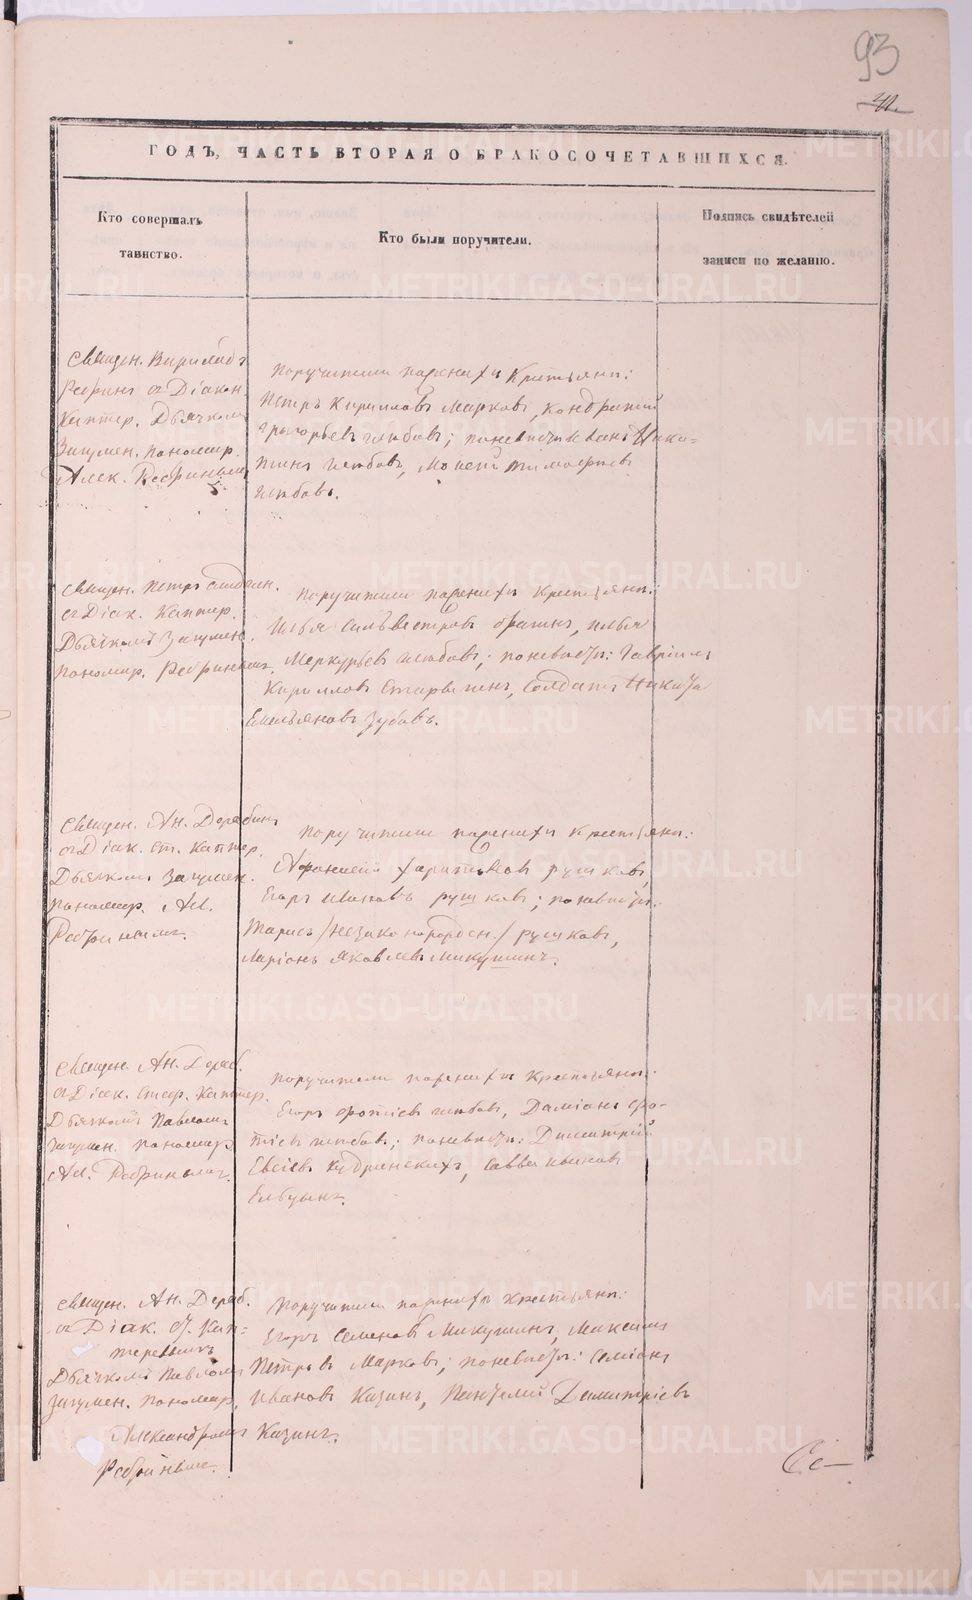 93
ГОДЪ, ЧАСТЬ ВТОРАЯ О БРАКОСОЧЕТАВШИХСЯ.
Кто совершалъ
таинство.
Кто были поручители.
Подпись свидѣтелей
записи по желанію.
Священ.
съ Діакон.
Каптер. Дьячкомъ
Загумен. пономар.
Алек. Ребринымъ
Поручители по женихѣ Крестьяне:
Петръ Кирилловъ Марковъ, Кондратій
Григорьевъ Глебовъ; по невѣстѣ Иванъ Ники-
тинъ Глебовъ, Тимофѣевъ
Глебовъ.
Священ. Петръ
съ Діак. Каптер.
Дьячкомъ Загумен.
пономар. Ребринымъ.
Поручители по женихѣ Крестьяне:
Илья Сильвестровъ Илья
Меркурьевъ Глебовъ; по невѣстѣ: Гавріилъ
Кирилловъ Солдатъ Никита
Емельяновъ Зубовъ.
Священ. Ан. Дерябинъ
съ Діак. Ст. Каптер.
Дьячкомъ Загумен.
пономар. Ал.
Ребринымъ.
Поручители по женихѣ Крестьяне:
Афанасій Харитоновъ Рушковъ,
Егоръ Ивановъ Рушковъ; по невѣстѣ:
/незаконорожден./ Рушковъ,
Ларіонъ Яковлевъ Микушинъ.
Священ. Ан. Деряб.
съ Діак. Стеф. Каптер.
Дьячкомъ Павломъ
Загумен. пономар.
Ал. Ребринымъ.
Поручители по женихѣ Крестьяне:
Егоръ Фотіевъ Глебовъ, Даміанъ Фо-
тіевъ Глебовъ; по невѣстѣ: Димитрій
Евсіевъ Кудринскихъ, Савва
Священ. Ан. Деряб.
съ Діак. С. Кап-
теревымъ
Дьячкомъ Павломъ
Загумен. пономар.
Александромъ
Ребринымъ.
Поручители по женихѣ Крестьяне:
Егоръ Семеновъ Микушинъ, Максимъ
Петровъ Марковъ; по невѣстѣ: Семіонъ
Ивановъ Казинъ, Пантелей Димитріевъ
Казинъ.
METRIKI.GASO-URAL.RU